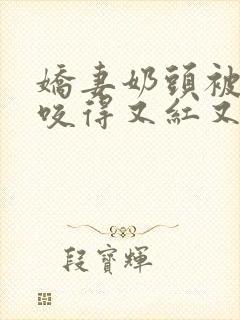 嬌妻奶頭被
咬得又紅又
段寶輝